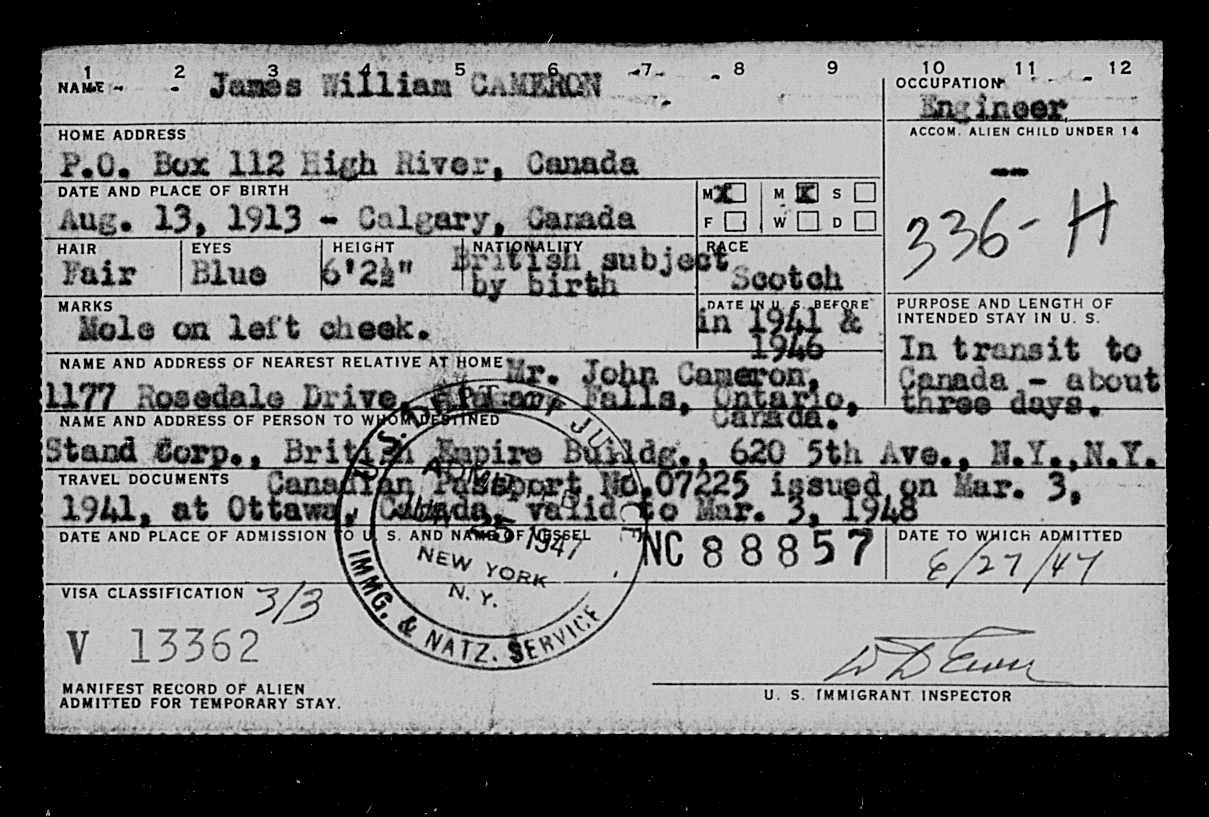 1 2 3 4 5 6 7 8 9 10 11 12
NAME James William CAMERON
OCCUPATION
Engineer
HOME ADDRESS
P.O. Box 112 High River, Canada
ACCOM. ALIEN CHILD UNDER 14
336-H
DATE AND PLACE OF BIRTH
Aug. 13, 1913 - Calgary, Canada
M X M X S
F W D
HAIR EYES HEIGHT NATIONALITY RACE
Fair Blue 6'2½" British subject by birth Scotch
MARKS
Mole on left cheek.
DATE IN U. S. BEFORE
in 1941 &
1946
PURPOSE AND LENGTH OF
INTENDED STAY IN U. S.
In transit to
Canada - about
three days.
NAME AND ADDRESS OF NEAREST RELATIVE AT HOME Mr. John Cameron,
1177 Rosedale Drive, Falls, Ontario,
Canada.
NAME AND ADDRESS OF PERSON TO WHOM DESTINED
Stand Corp., British Empire Buildg., 620 5th Ave., N.Y.,N.Y.
TRAVEL DOCUMENTS Canadian Passport No.07225 issued on Mar. 3,
1941, at Ottawa, Canada, valid to Mar. 3, 1948
DATE AND PLACE OF ADMISSION TO U. S. AND NAME OF VESSEL
NC 88857
DATE TO WHICH ADMITTED
6/27/47
U.S. JUSTICE
ADMITTED
1947
NEW YORK
N. Y.
IMMG. & NATZ. SERVICE
VISA CLASSIFICATION 3/3
V 13362
MANIFEST RECORD OF ALIEN
ADMITTED FOR TEMPORARY STAY.
U. S. IMMIGRANT INSPECTOR